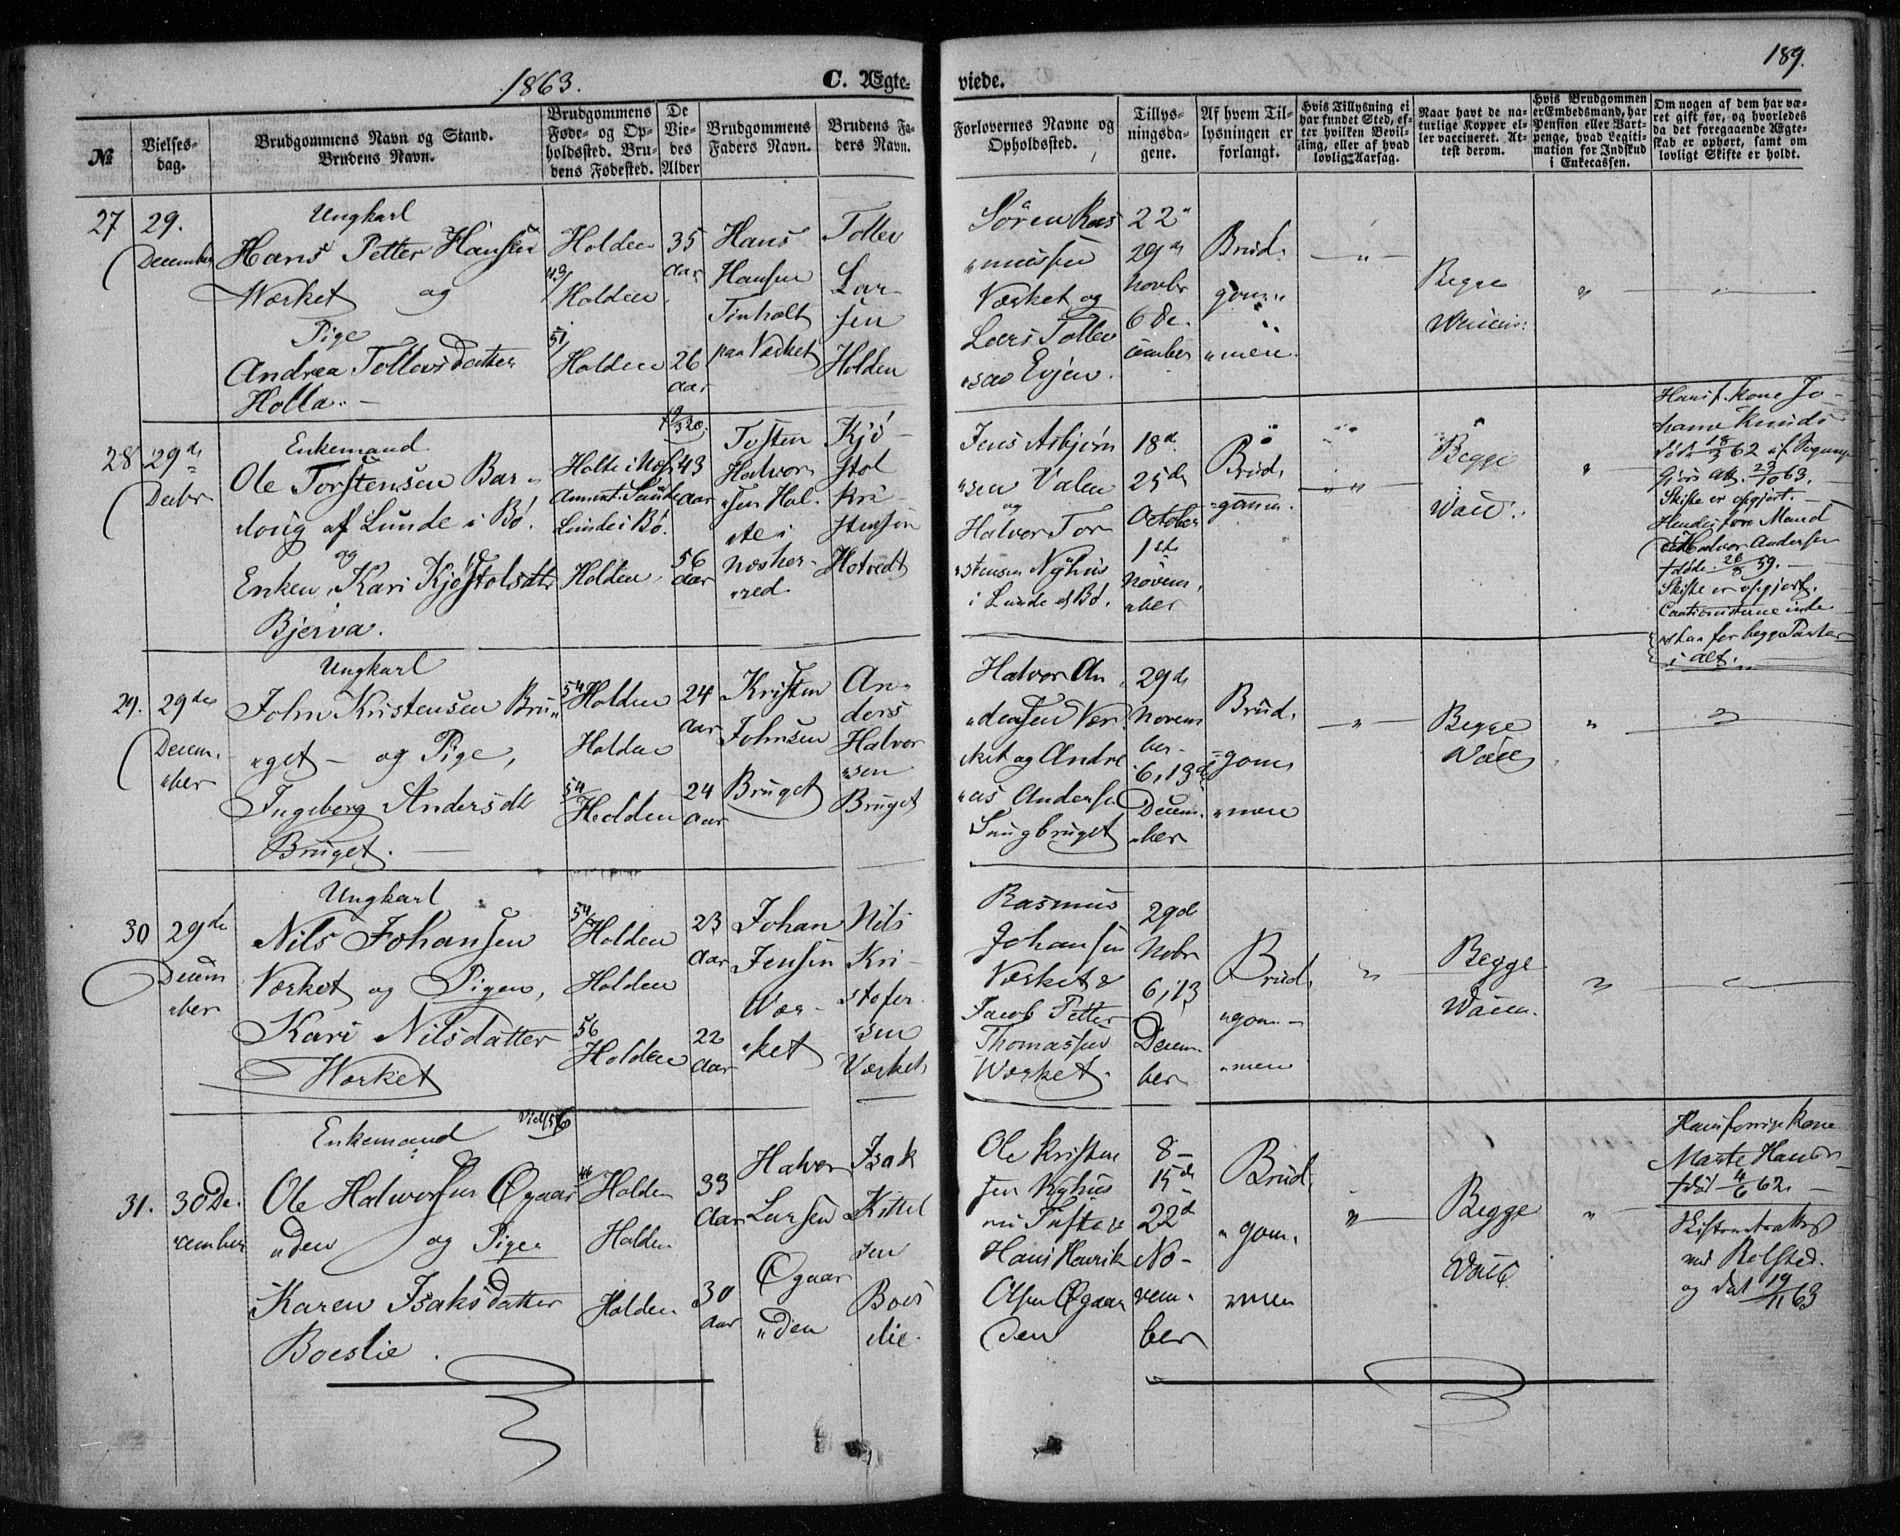 1863.
C. Ægte-
viede.
189.
№
Vielses-
dag.
Brudgommens Navn og Stand.
Brudens Navn.
Brudgommens
Føde- og Op-
holdssted. Bru-
dens Fødested.
De
Vie-
des
Alder
Brudgommens
Faders Navn.
Brudens Fa-
ders Navn.
Forlovernes Navne og
Opholdssted.
Tillys-
ningsda-
gene.
Af hvem Til-
lysningen er
forlangt.
Hvis Tillysning ei
har fundet Sted, ef-
ter hvilken Bevil-
ling, eller af hvad
lovlig Aarsag.
Naar havt de na-
turlige Kopper el-
ler vaccineret. At-
test derom.
Hvis Brudgommen
er Embedsmand, har
Pension eller Vart-
penge, hvad Legiti-
mation for Indskud
i Enkecassen.
Om nogen af dem har væ-
ret gift før, og hvorledes
da det foregaaende Ægte-
skab er ophørt, samt om
lovligt Skifte er holdt.
27
29.
December
Ungkarl
Hans Petter Hansen
Værket og
Pige
Andrea Tollevsdatter
Holla.
Holden
Holden
51/
Holden
35
aar
26
aar
Hans
Hansen
Tinholt
paa Værket
Tollev
Lar-
sen
Holden
Sören Ras
"mussen
Værket og
Lars Tollev
"sen Evjen.
22
29de
Novbr
6 De-
cember
Brud-
gom-
"men.
Begge
28
29de
Decbr
Enkemand
Ole Torstensen Bar-
loug af Lunde i Bø.
og
Enken, Kari Kjöstolsdtr
Bjerva.
Holte i Næs
Lunde i Bø.
Holden
43
aar
56
aar
Tosten
Halvor
"sen Hol-
te i
Næsher-
"red.
Kjö-
stol
Kri-
stensen
Hotvedt
Jens Asbjörn
"sen Valen
og
Halvor Tor
"stensen Nÿhus
i Lunde af Bø.
18de
25de
October
1ste
Novem-
"ber
Brud-
"gomm.
Begge
Vacc.
Hans f. Kone Jo-
hanne Knuds
døde 18/3 62
23/10 63.
Skifte er opgjort.
Hendes forr Mand
Halvor Andersen
døde 26/8 59.
Skifte er opgjort.
Cautionisterne inde
staa for begge Parter
i alt.
29.
29de
Decem-
"ber
Ungkarl
John Kristensen Bru-
"get - og Pige,
Ingeberg Andersdtr
Bruget.
54
Holden
Holden
54
Holden
24
aar
24
aar
Kristen
Johnsen
Bruget
An-
ders
Halvor
"sen
Bruget
Halvor An
"dersen Vær-
ket og Andre
"as Andersen
Saugbruget
29de
Novem
ber.
6, 13de
Decem-
"ber
Brud-
"gom-
"men
Begge
Vacc
30
29de
Decem
"ber
Ungkarl
Nils Johansen
Værket og Pigen,
Kari Nilsdatter
Værket
54
Holden
Holden
56
Holden
23
aar
22
aar
Johan
Jensen
Vær-
"ket
Nils
Kri-
stofer
"sen
Værket
Rasmus
Johansen
Værket &
Jacob Petter
Thomassen
Værket.
29de
Nobr
6, 13
Decem-
ber
Brud-
"gom-
"men
Begge
Vaccn.
31.
30 De-
"cember
Enkemand
Ole Halvorsen Øgaar
"den og Pigen
Karen Isaksdatter
Boeslie.
Holden
Holden
Holden
33
aar
30
aar
Halvor
Larsen
Øgaar
"den
Isak
Kittel
sen
Boes
lie.
Ole Kristen
sen Nyhus
Hans Henrik
Olsen Øgaar
den
8 -
15de
22de
No-
vem-
ber
Brud-
"gom-
"men
Begge
Vacc
Hans forrige Kone
Marte Hansd
død 4/6 62.
Skifteattest
og dat 19/11 63